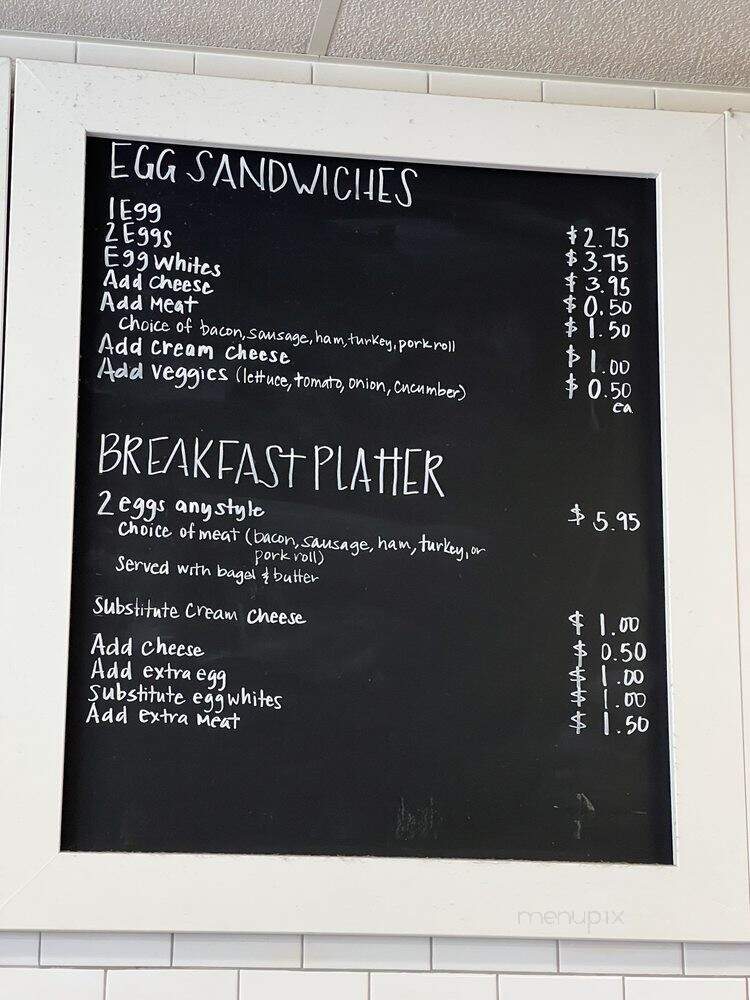 EGG SANDWICHES
1 Egg $2.75
2 Eggs $3.75
Egg Whites $3.95
Add Cheese $0.50
Add Meat $1.50
choice of bacon, sausage, ham, turkey, pork roll
Add cream cheese $1.00
Add Veggies (lettuce, tomato, onion, cucumber) $0.50
ea
BREAKFAST PLATTER
2 eggs any style $5.95
choice of meat (bacon, sausage, ham, turkey, or
pork roll)
Served with bagel & butter
Substitute Cream Cheese $1.00
Add Cheese $0.50
Add extra egg $1.00
Substitute egg whites $1.00
Add extra Meat $1.50
menupix